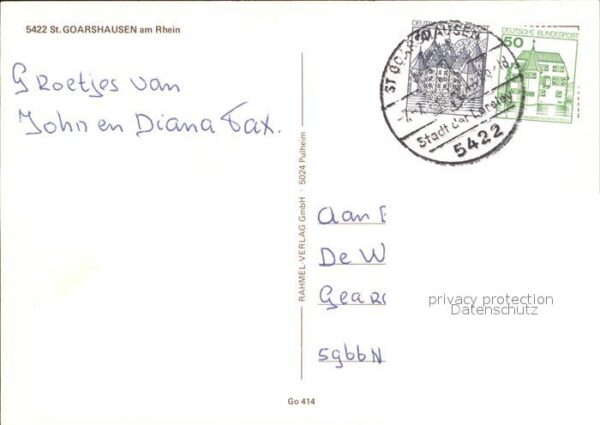 5422 St. GOARSHAUSEN am Rhein
Groetjes van
John en Diana Tax.
RAHMEL-VERLAG GmbH · 5024 Pulheim
Go 414
DEUTSCHE BUNDESPOST
50
ST GOARSHAUSEN
Stadt der Loreley
5422
Aan
De W
Gear
privacy protection
Datenschutz